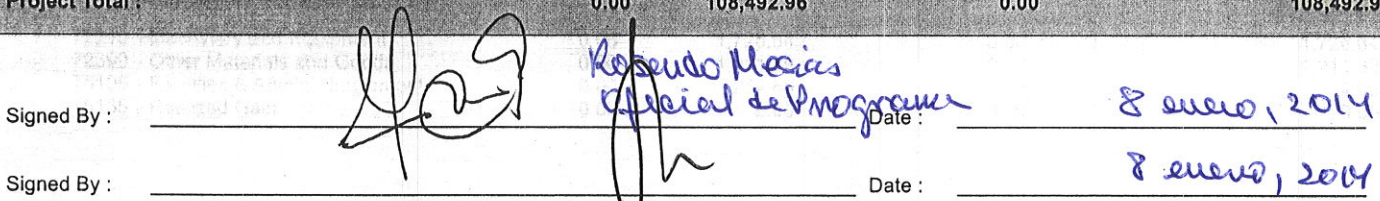 Project Total : 0.00 108,492.96 0.00 108,492.9
Rosendo Mecias
Oficial de Programa
Signed By : Date : 8 enero, 2014
Signed By : Date : 8 enero, 2014